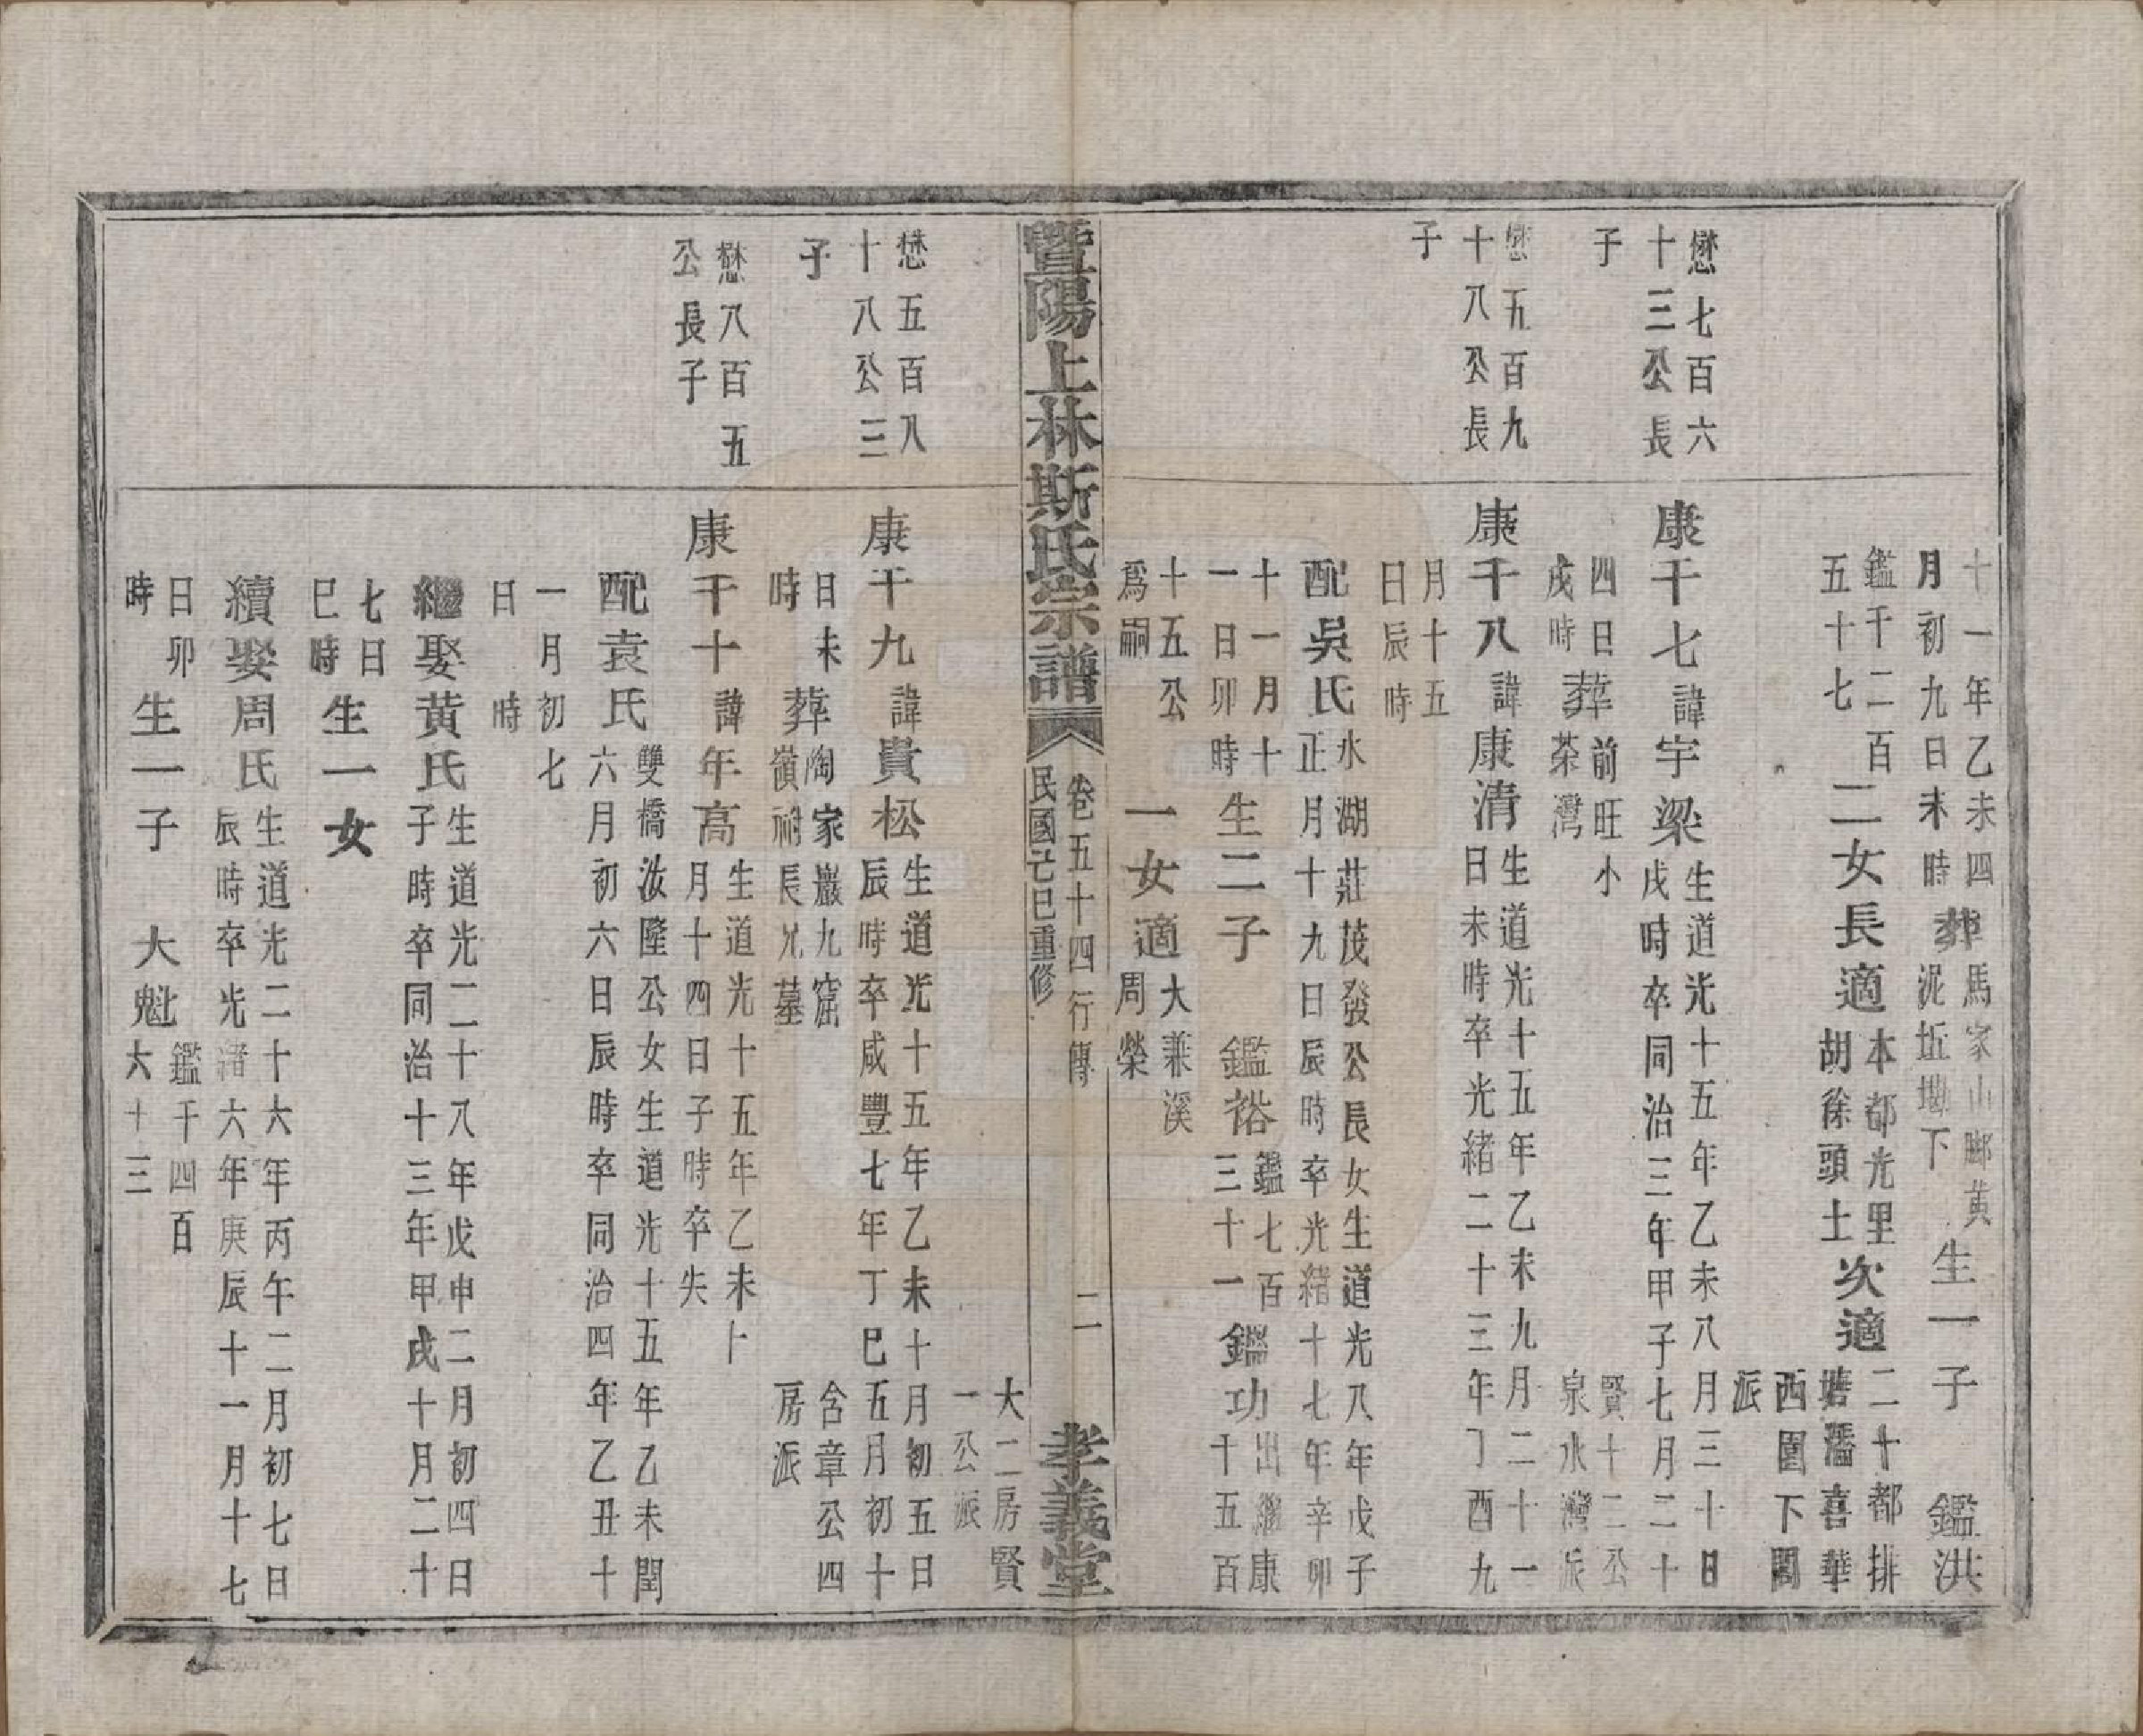 十一年乙未四
月初九日未時
葬
馬家山鄉黄
泥坵墈下
生一子
鑑洪
鑑千二百
五十七
二女長適
本都光里
胡徐頭土
次適
二十都排
塘潘喜華
西圍下閣
派
懋七百六
十三公長
子
康千七諱宇梁
生道光十五年乙未八月三十日
戌時卒同治三年甲子七月二十
四日
戌時
葬
前旺小
茶灣
賢十二公
泉水灣派
懋五百九
十八公長
子
康千八諱康清
生道光十五年乙未九月二十一
日未時卒光緒二十三年丁酉九
月十五
日辰時
配吳氏
水湖莊茂發公長女生道光八年戊子
正月十九日辰時卒光緒十七年辛卯
十一月十
一日卯時
生二子
鑑裕
鑑七百
三十一
鑑功
出繼康
千五百
十五公
爲嗣
一女適
大兼溪
周榮
暨陽上林斯氏宗譜
卷五十四行傳
民國己巳重修
二
孝義堂
大二房賢
一公派
懋五百八
十八公三
子
康千九諱貴松
生道光十五年乙未十月初五日
辰時卒咸豐七年丁巳五月初十
日未
時
葬
陶家巖九窟
嶺祔長兄墓
含章公四
房派
懋八百五
公長子
康千十諱年高
生道光十五年乙未十
月十四日子時卒失
配袁氏
雙橋汝隆公女生道光十五年乙未閏
六月初六日辰時卒同治四年乙丑十
一月初七
日時
繼娶黄氏
生道光二十八年戊申二月初四日
子時卒同治十三年甲戌十月二十
七日
巳時
生一女
續娶周氏
生道光二十六年丙午二月初七日
辰時卒光緒六年庚辰十一月十七
日卯
時
生一子
大魁
鑑千四百
六十三